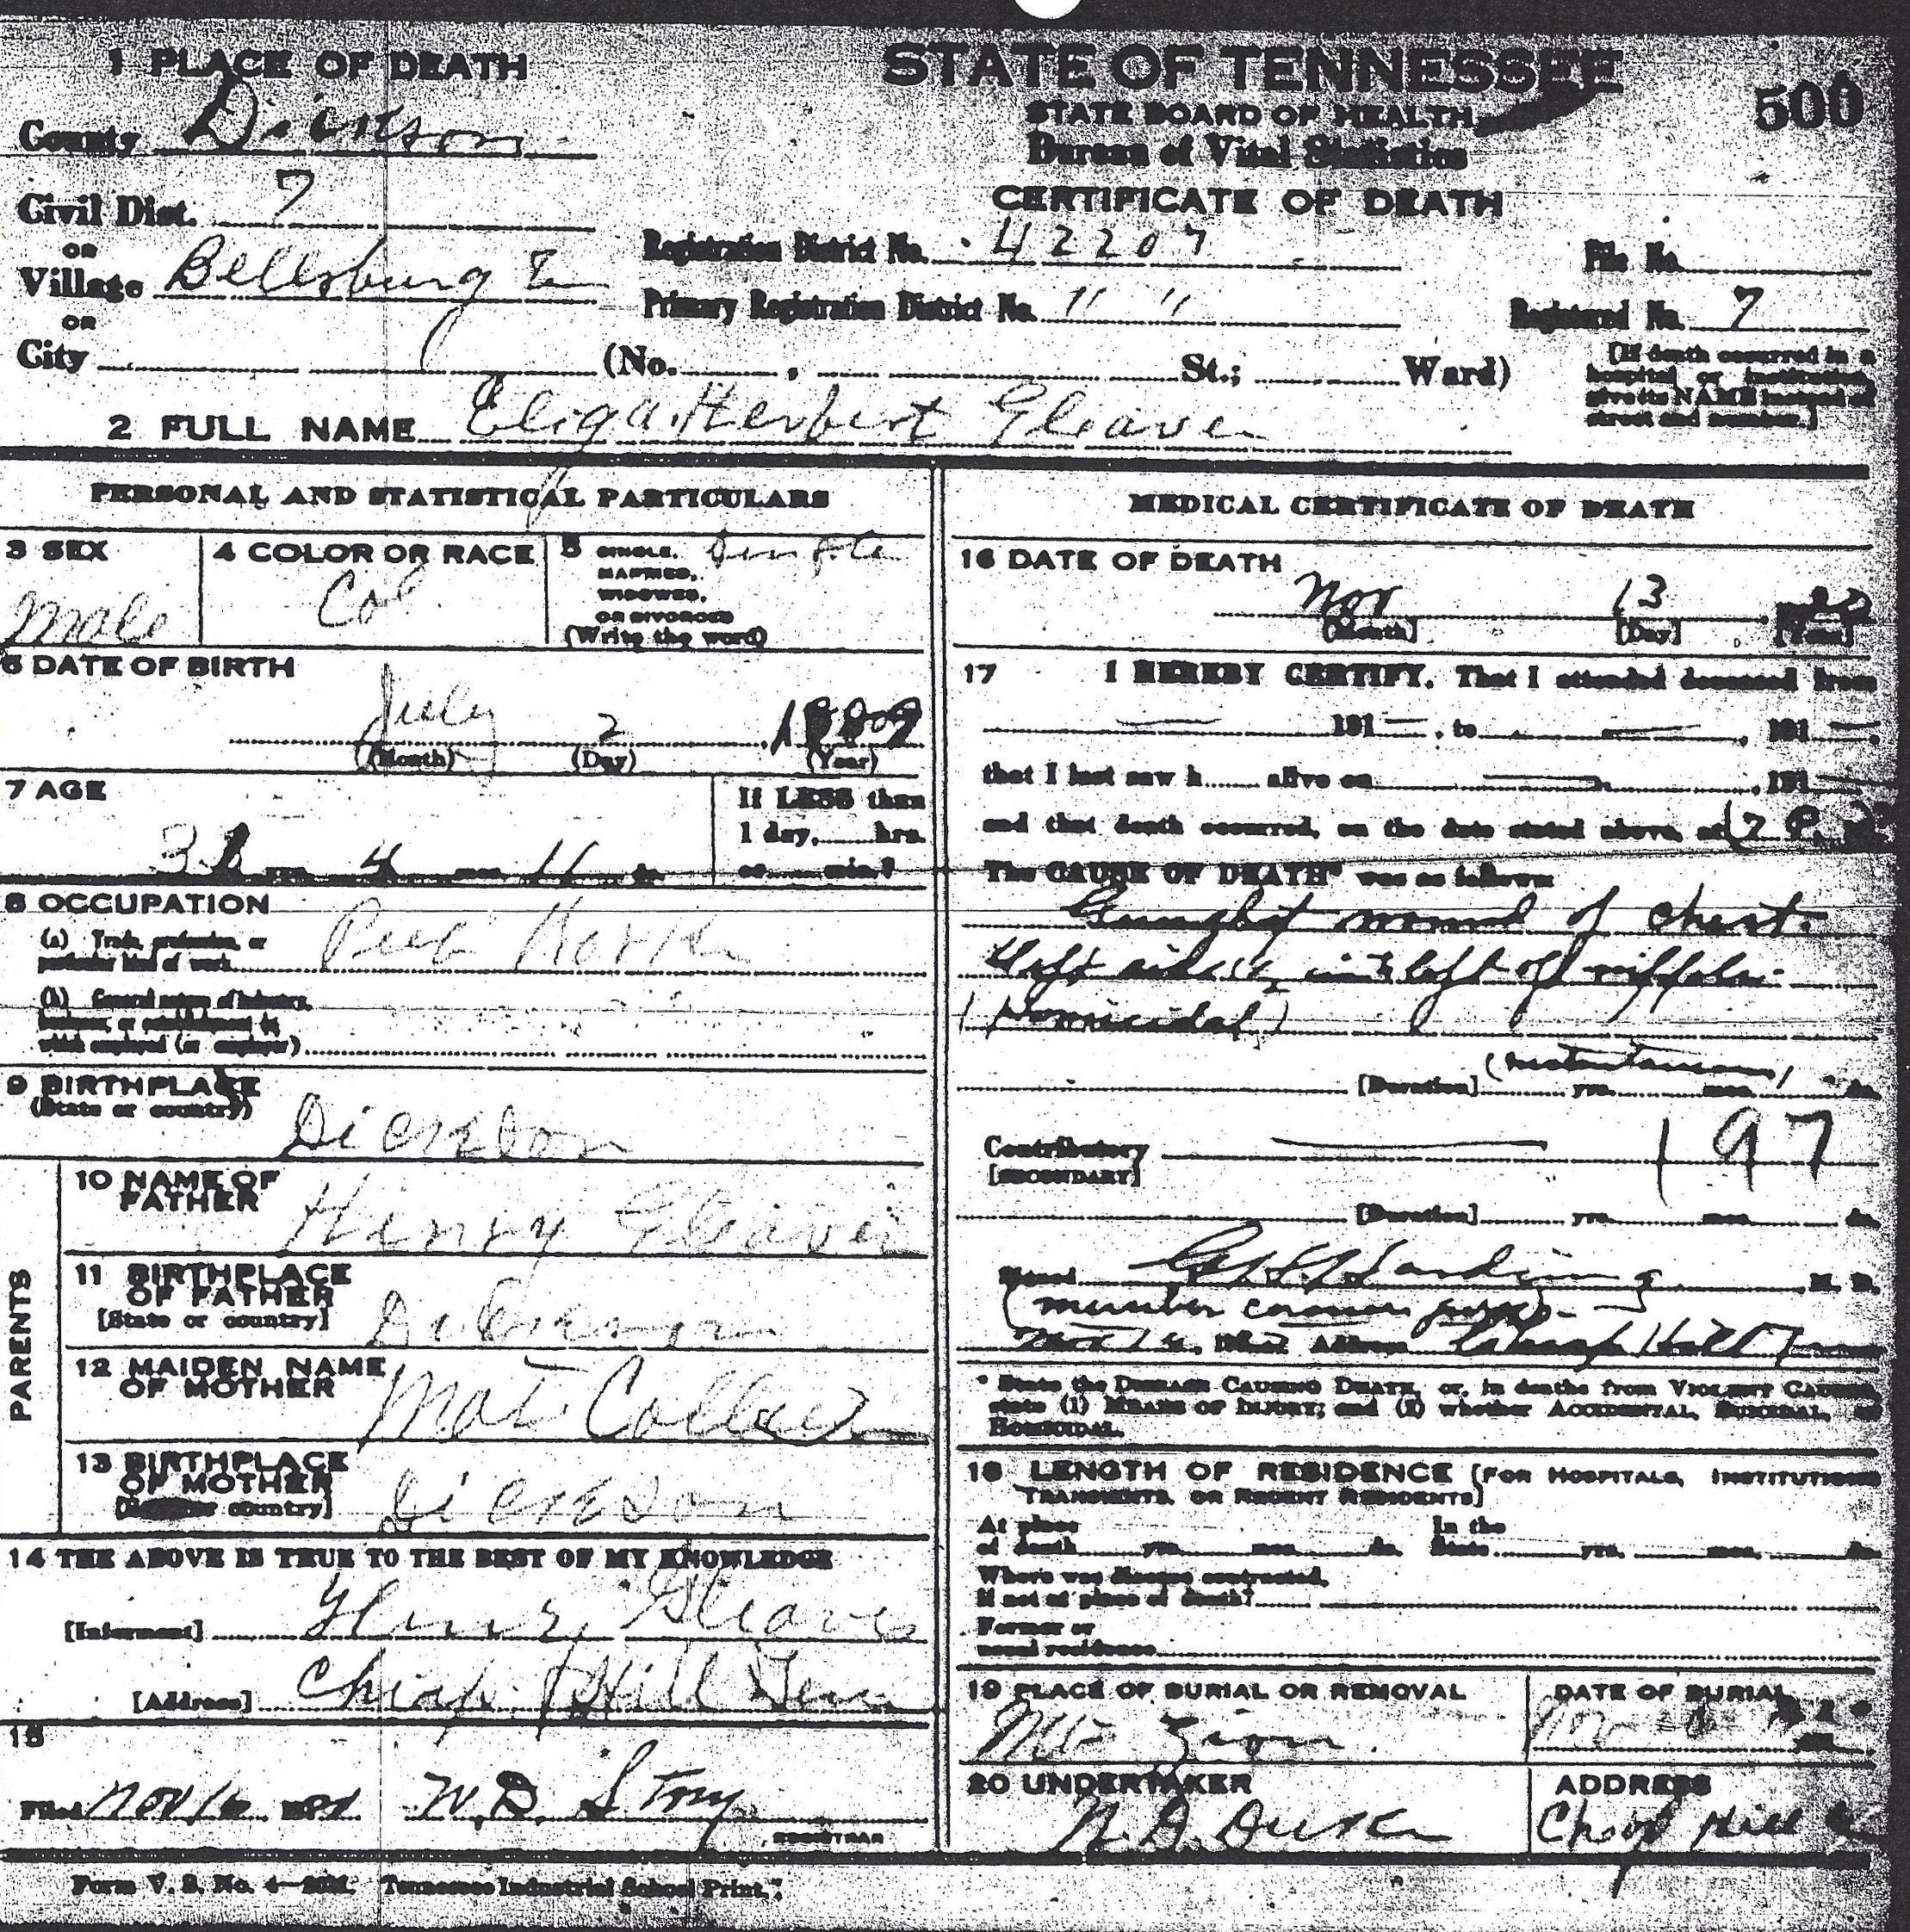 1 PLACE OF DEATH
County Dickson
Civil Dist. 7
OR
Village Bellsburg
OR
City (No. , St.; Ward)
STATE OF TENNESSEE
STATE BOARD OF HEALTH
Bureau of Vital Statistics
CERTIFICATE OF DEATH
500
Registration District No. 42207
File No.
Primary Registration District No. " "
Registered No. 7
[If death occurred in a
hospital or institution,
give its NAME instead of
street and number.]
2 FULL NAME Eliga Herbert Gleaves
PERSONAL AND STATISTICAL PARTICULARS
3 SEX
Male
4 COLOR OR RACE
Col
5 SINGLE,
MARRIED,
WIDOWED,
OR DIVORCED
(Write the word)
Single
6 DATE OF BIRTH
July 2
(Month) (Day) (Year)
7 AGE
yrs. 4 mos. 11 ds.
If LESS than
1 day, hrs.
or min.?
8 OCCUPATION
(a) Trade, profession, or
particular kind of work
(b) General nature of industry,
business, or establishment in
which employed (or employer)
9 BIRTHPLACE
(State or country)
Dickson
PARENTS
10 NAME OF
FATHER
Henry Gleaves
11 BIRTHPLACE
OF FATHER
[State or country]
Dickson
12 MAIDEN NAME
OF MOTHER
Mat
13 BIRTHPLACE
OF MOTHER
country]
Dickson
14 THE ABOVE IS TRUE TO THE BEST OF MY KNOWLEDGE
[Informant] Henry Gleaves
[Address] Hill Tenn
15
Filed Nov 16 W. D. Story
REGISTRAR
MEDICAL CERTIFICATE OF DEATH
16 DATE OF DEATH
Nov 13
[Month] [Day] [Year]
17 I HEREBY CERTIFY, That I attended deceased from
191 , to 191
that I last saw h alive on 191
and that death occurred, on the date stated above, at 7 P. M.
The CAUSE OF DEATH* was as follows:
Gunshot wound of chest.
left of nipple.
(Homicidal)
(instantaneous)
[Duration] yrs. mos. ds.
Contributory
[SECONDARY]
197
[Duration] yrs. mos. ds.
Signed Harding M. D.
(member coroner
Nov 14, Address Hill Tenn
* State the DISEASE CAUSING DEATH, or, in deaths from VIOLENT CAUSES,
state (1) MEANS OF INJURY; and (2) whether ACCIDENTAL, SUICIDAL, or
HOMICIDAL.
18 LENGTH OF RESIDENCE [FOR HOSPITALS, INSTITUTIONS
TRANSIENTS, OR RECENT RESIDENTS]
At place
of death yrs. mos. ds.
In the
State yrs. mos. ds.
Where was disease contracted,
if not at place of death?
Former or
usual residence
19 PLACE OF BURIAL OR REMOVAL
Mt Zion
DATE OF BURIAL
Nov
20 UNDERTAKER
ADDRESS
Hill
Form V. S. No. Tennessee Industrial School Print.